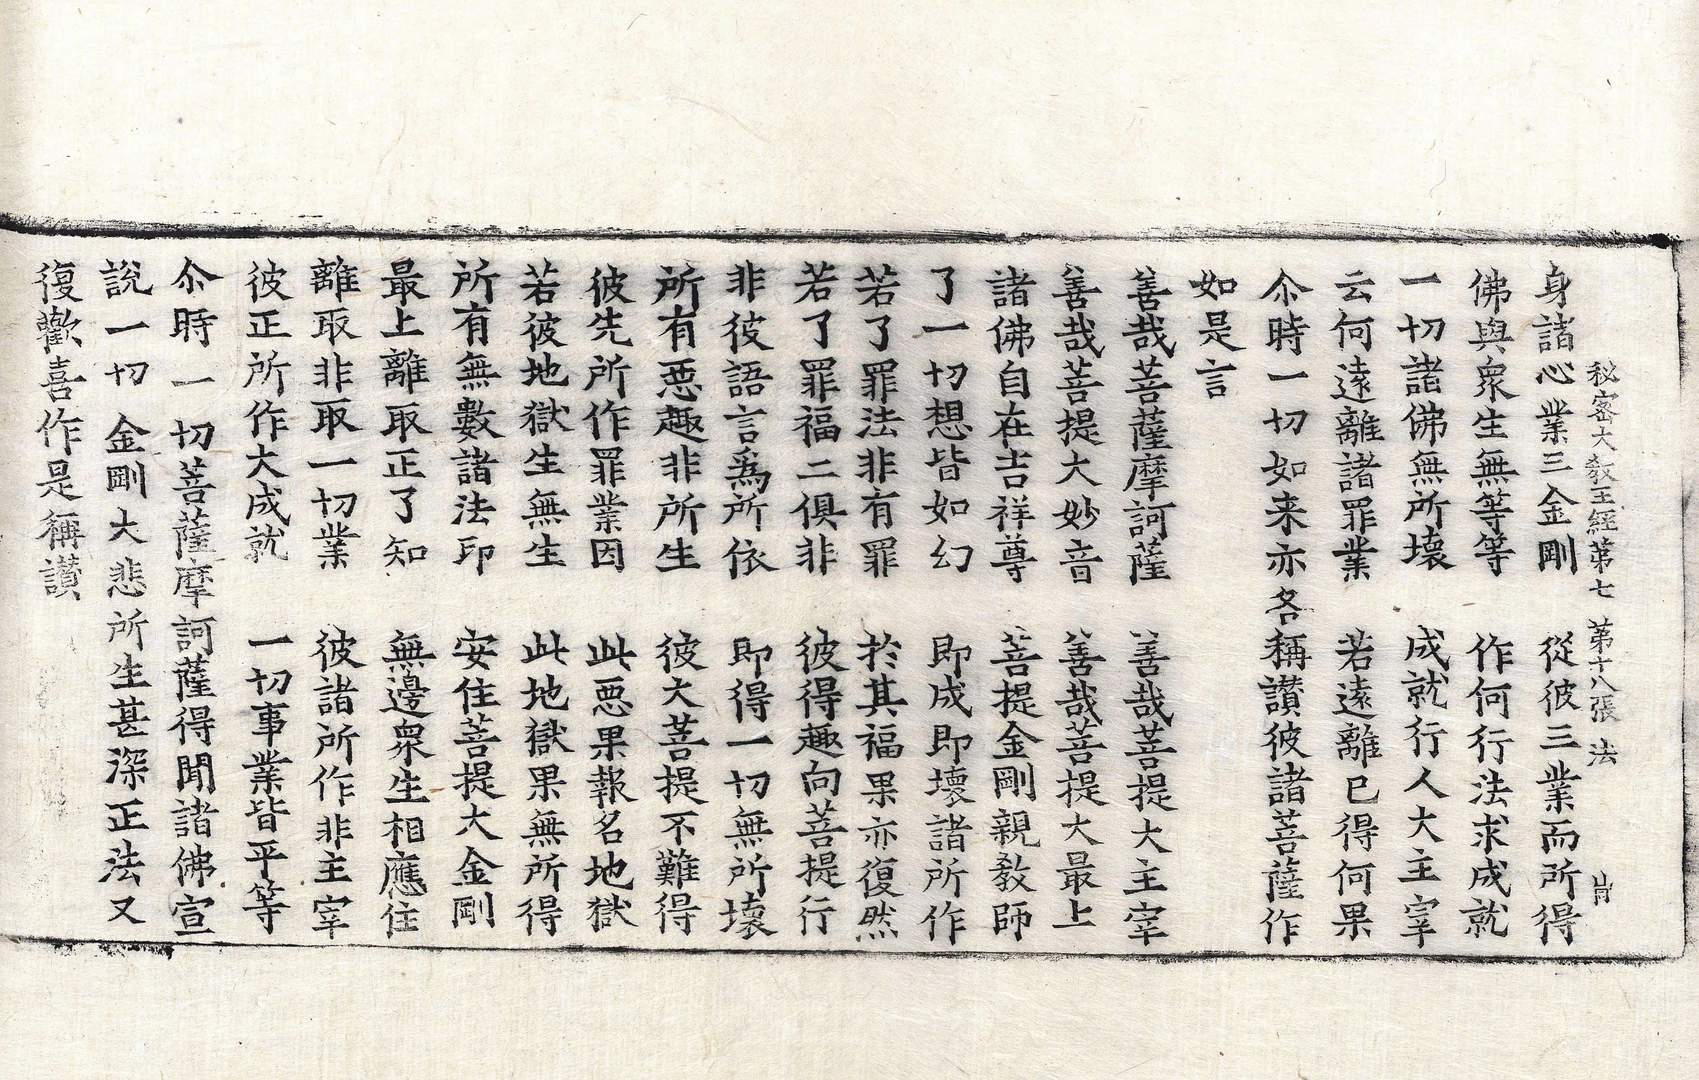 秘密大教王經第七 第十八張 法
身諸心業三金剛 從彼三業而所得
佛與衆生無等等 作何行法求成就
一切諸佛無所壞 成就行人大主宰
云何遠離諸罪業 若遠離已得何果
尒時一切如来亦各稱讃彼諸菩薩作
如是言
善哉菩薩摩訶薩 善哉菩提大主宰
善哉菩提大妙音 善哉菩提大最上
諸佛自在吉祥尊 菩提金剛親教師
了一切想皆如幻 即成即壞諸所作
若了罪法非有罪 於其福果亦復然
若了罪福二俱非 彼得趣向菩提行
非彼語言爲所依 即得一切無所壞
所有惡趣非所生 彼大菩提不難得
彼先所作罪業因 此惡果報名地獄
若彼地獄生無生 此地獄果無所得
所有無數諸法印 安住菩提大金剛
最上離取正了知 無邊衆生相應住
離取非取一切業 彼諸所作非主宰
彼正所作大成就 一切事業皆平等
尒時一切菩薩摩訶薩得聞諸佛宣
說一切金剛大悲所生甚深正法又
復歡喜作是稱讃